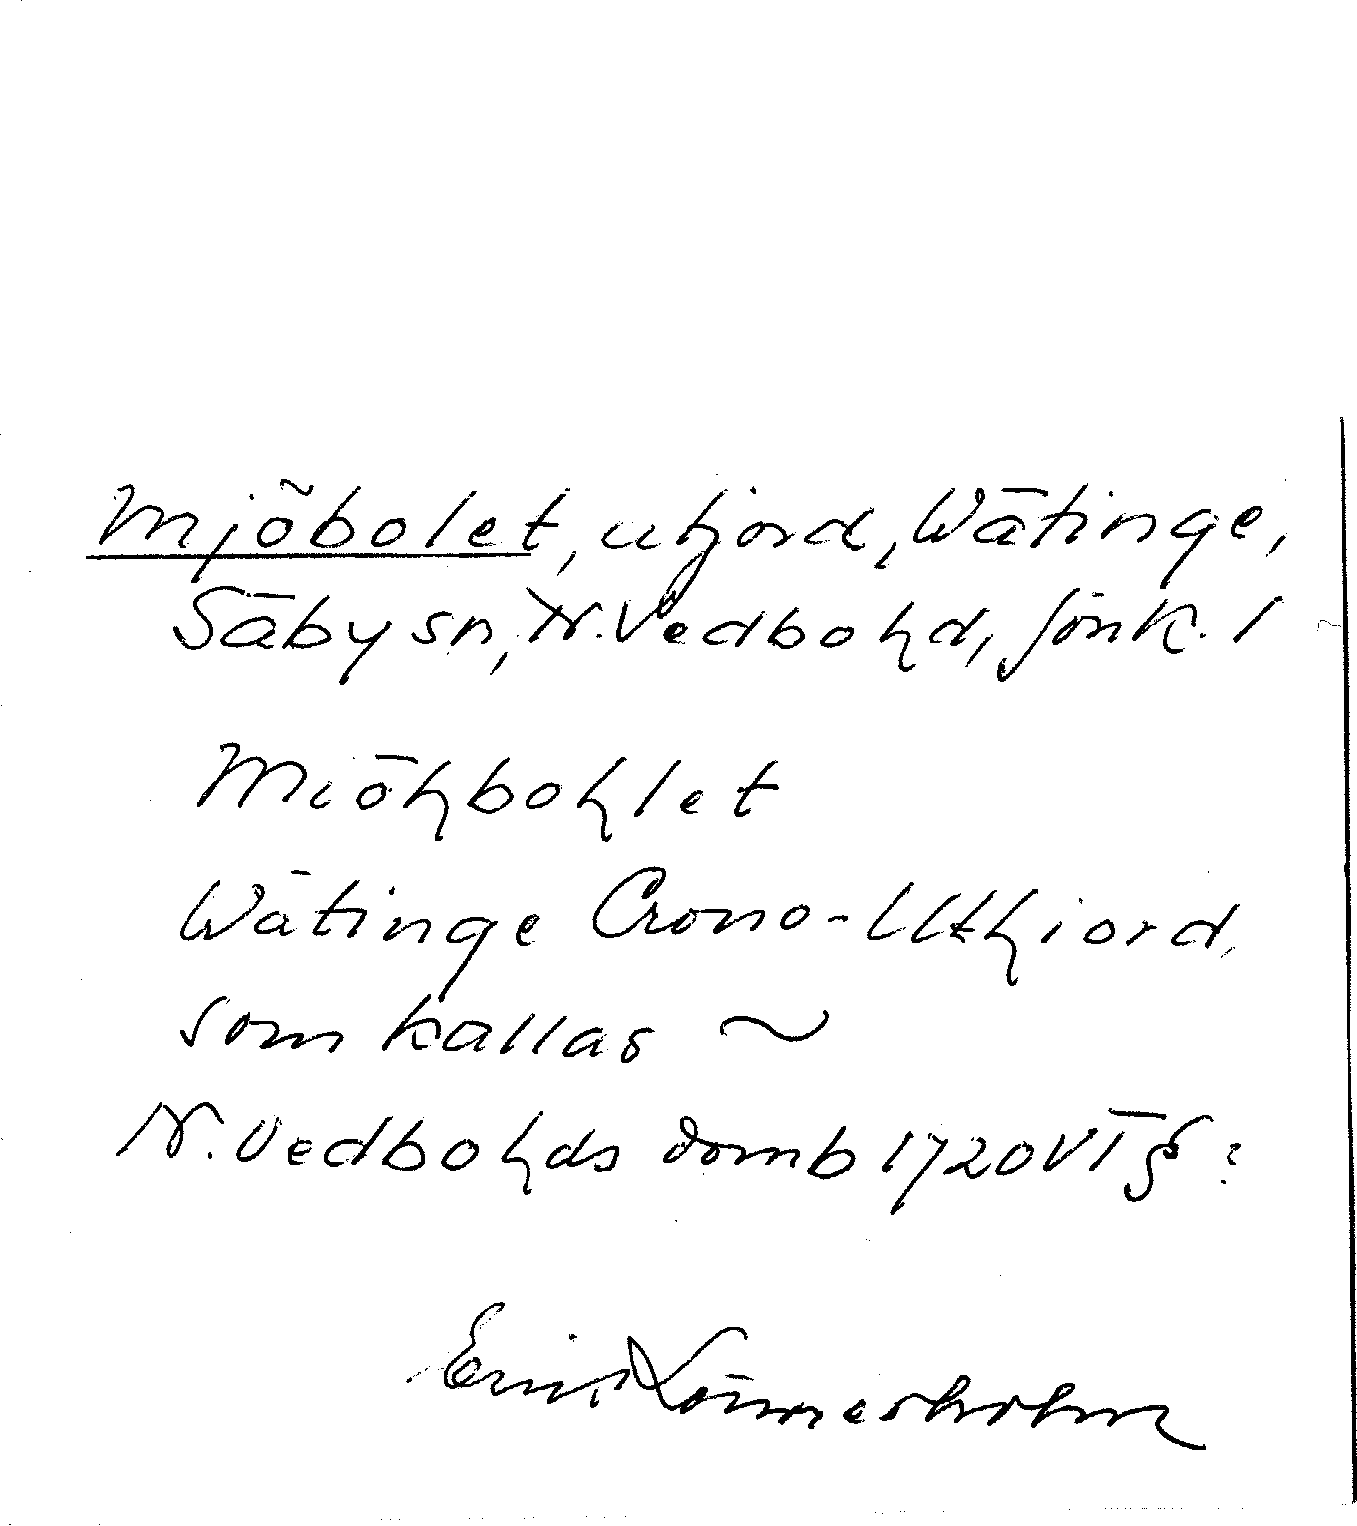 Mjöbolet, utjord, Wätinge,
Säby sn, N. Vedbo hd, Jönk. l
Miöhbohlet
Wätinge Crono-Uthjord,
som kallas ~
N. Vedbo hds domb 1720 VT §
Erik Lönnerholm